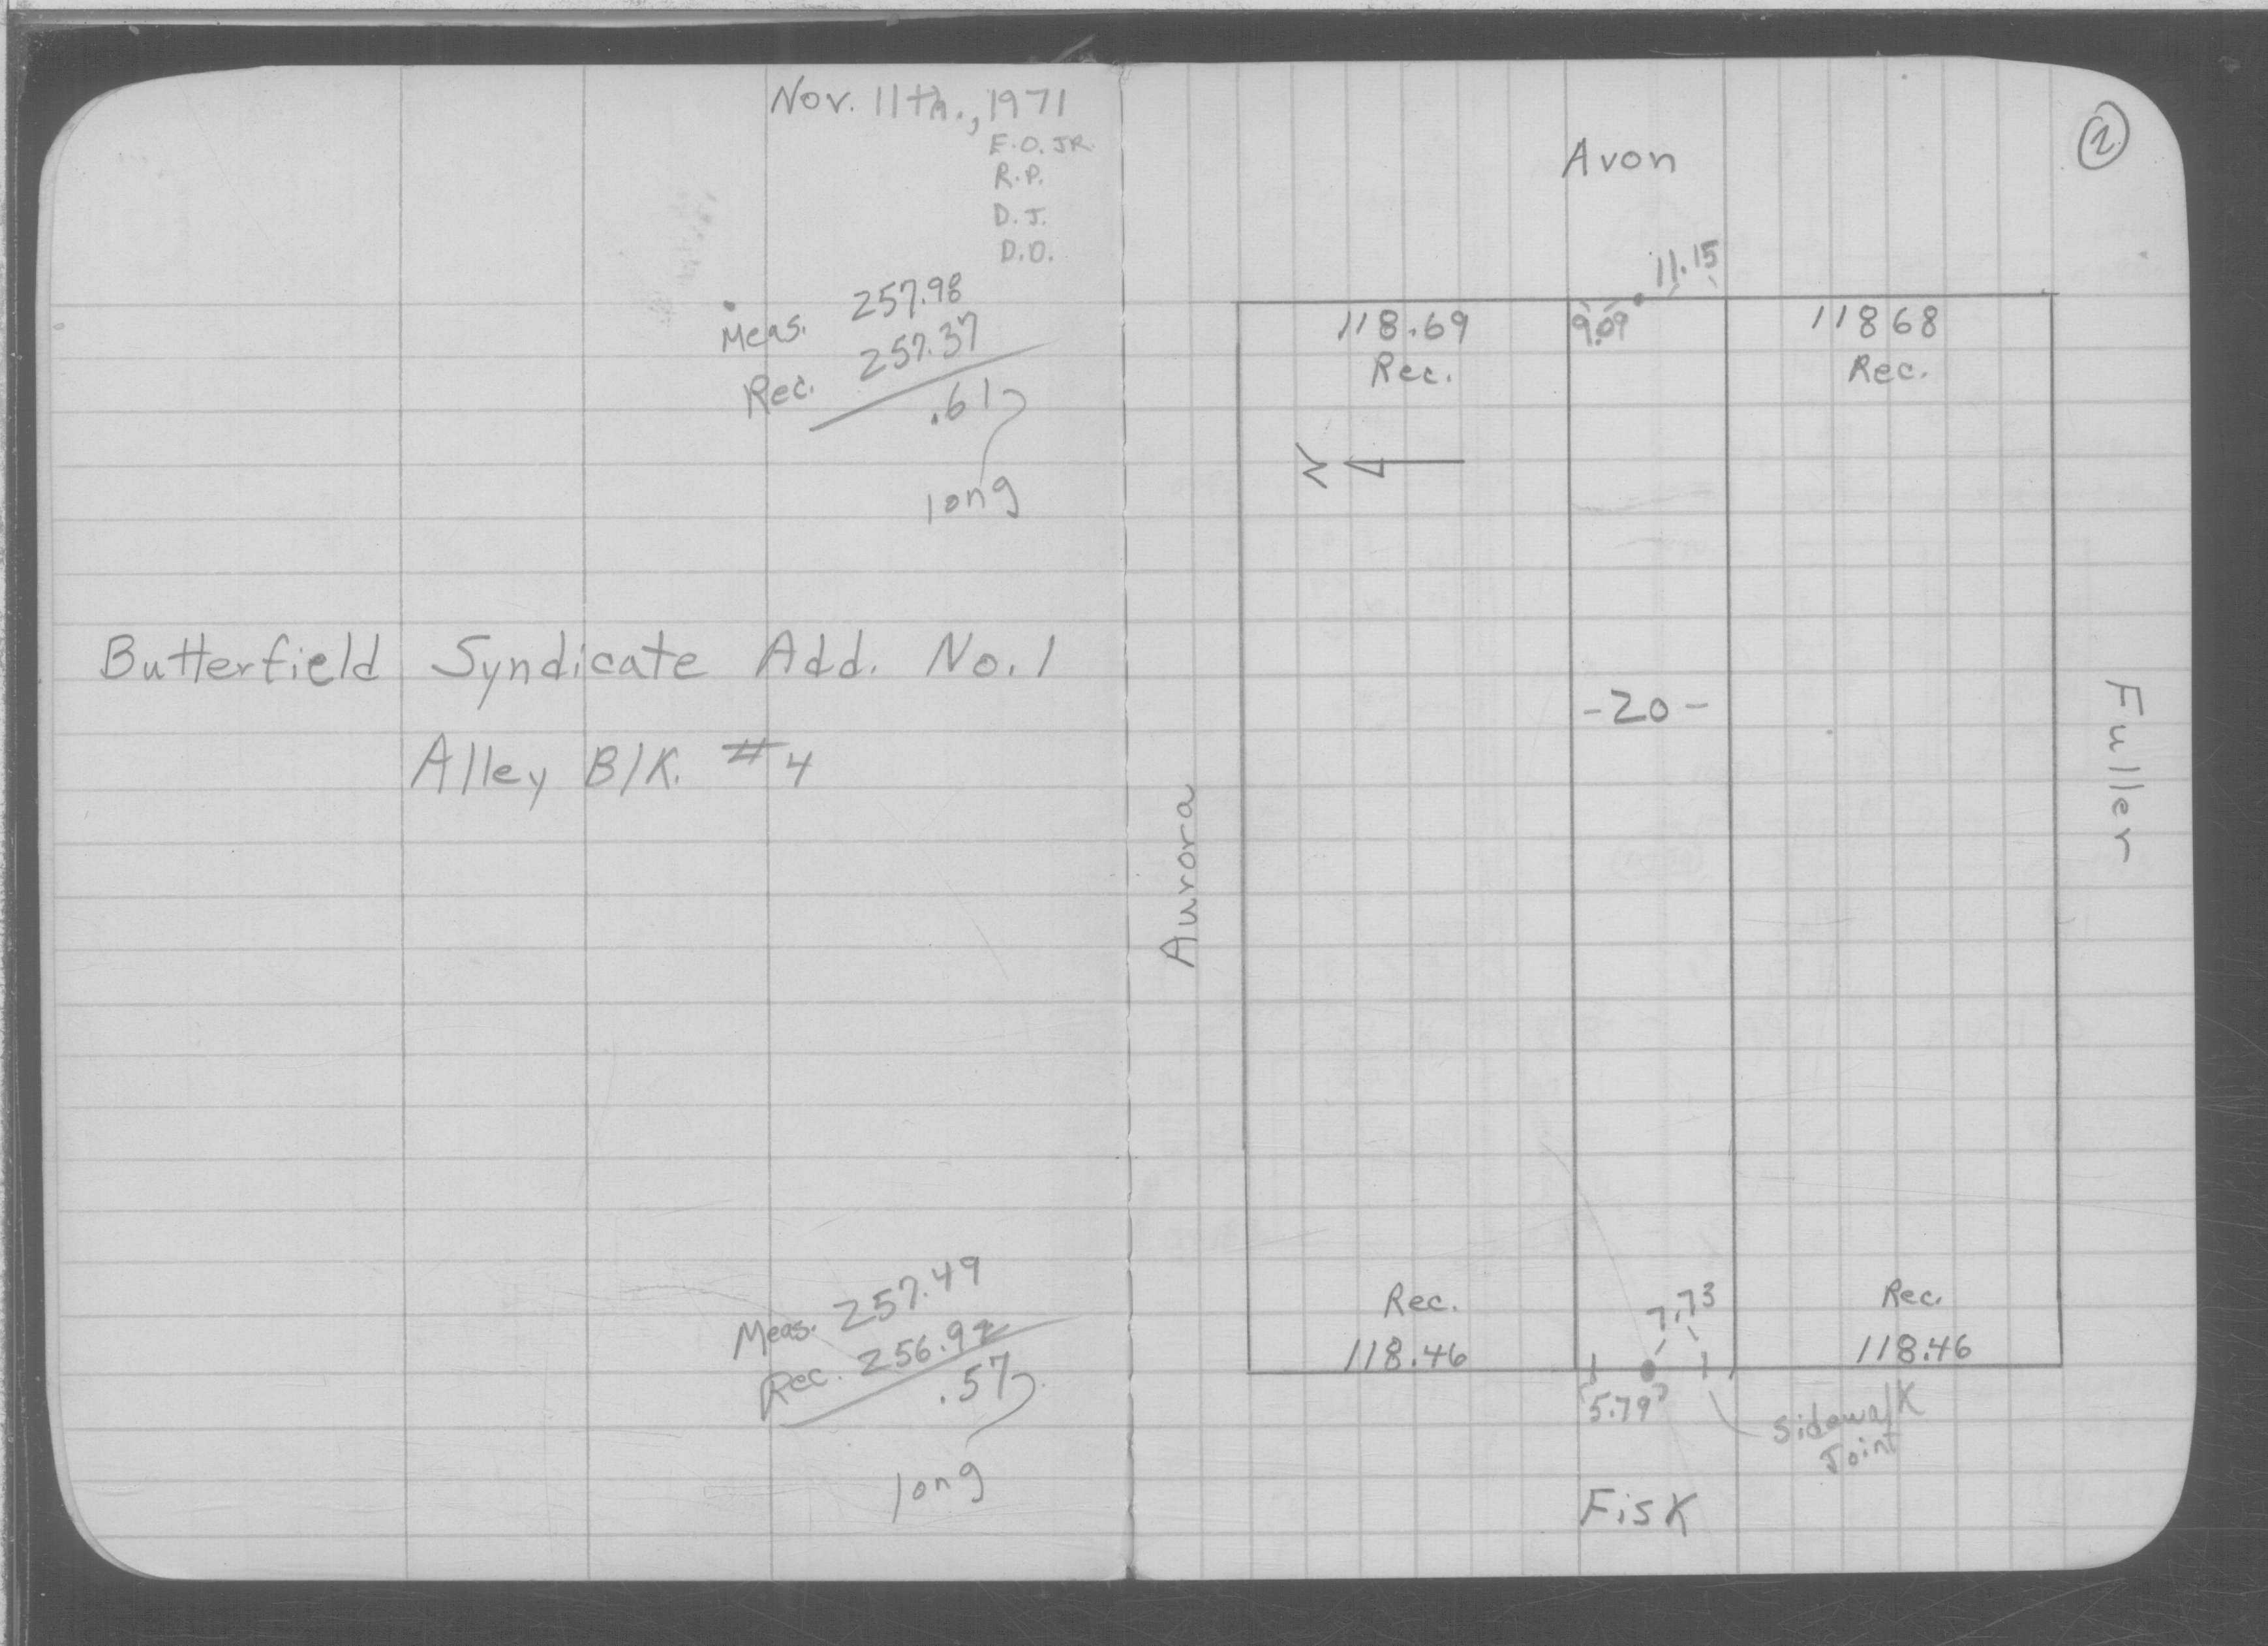 Nov. 11th., 1971
E.O. JR.
R.P.
D.J.
D.O.
Meas. 257.98
Rec. 257.37
.61
long
Butterfield Syndicate Add. No. 1
Alley Blk. #4
Meas. 257.49
Rec. 256.92
.57
long
2
Avon
11.15
118.69
Rec.
9.09
118 68
Rec.
N
-20-
Aurora
Fuller
Rec.
118.46
7.73
Rec.
118.46
5.79
Sidewalk
Joint
Fisk